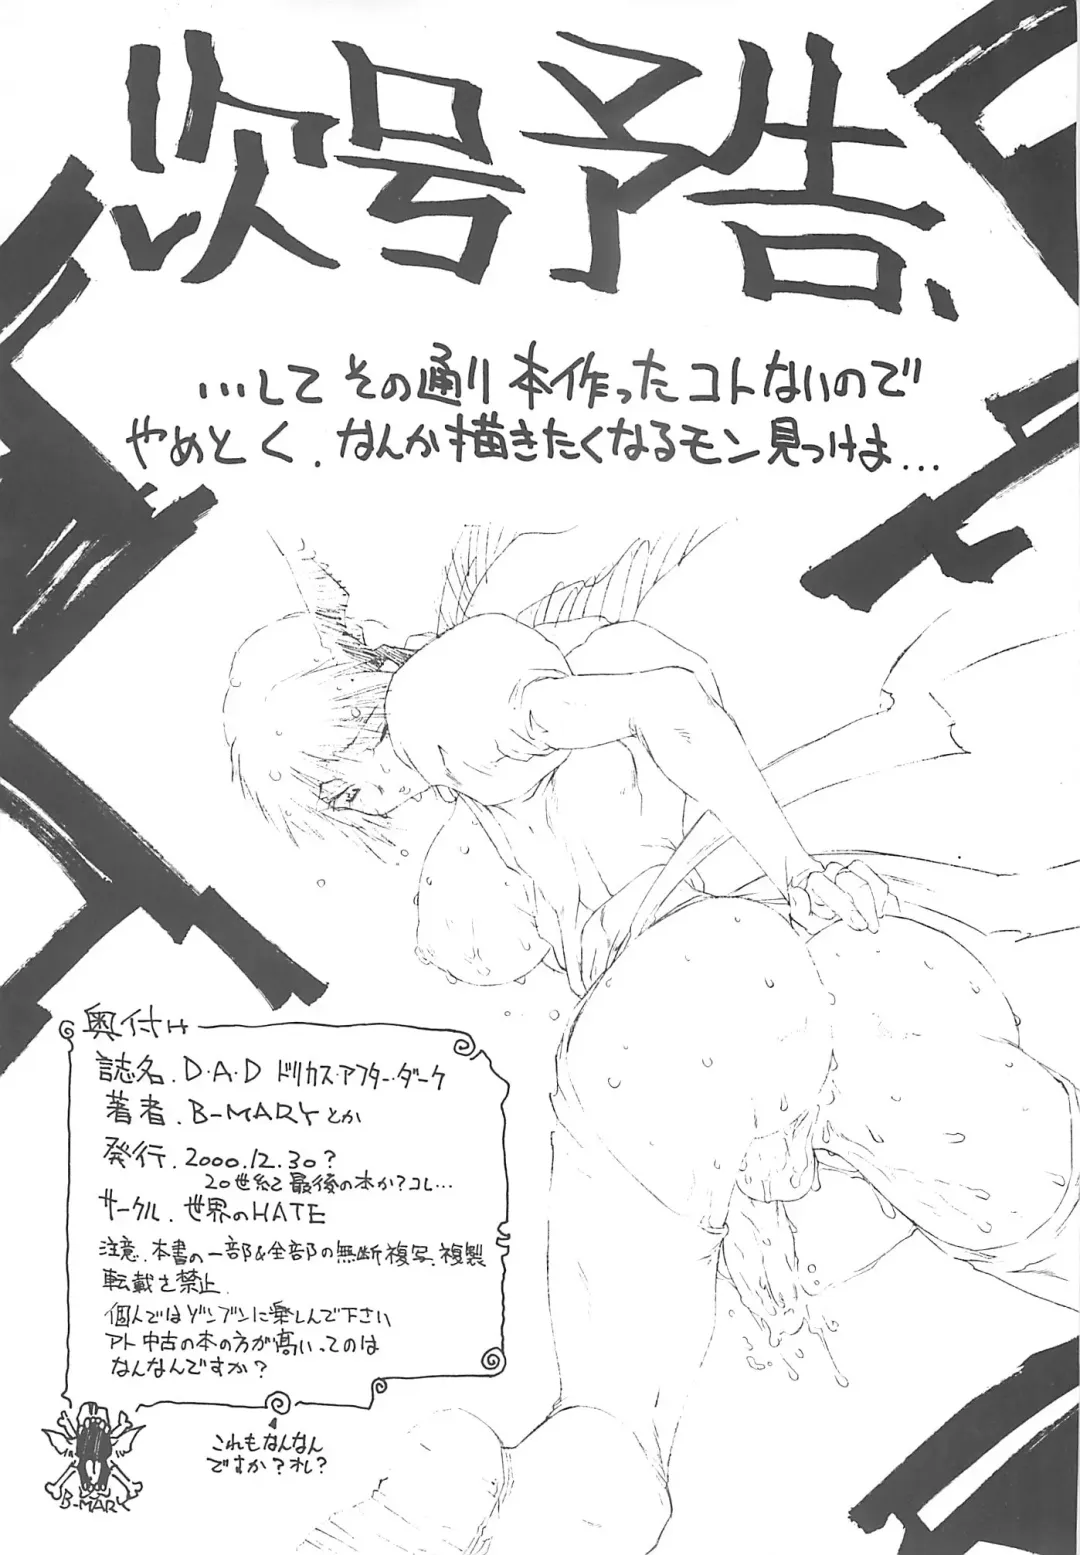 次号予告、
…して その通り 本作ったコトないので
やめとく．なんか描きたくなるモン見つけよ…
奥付け
誌名．D・A・D ドリカス・アフター・ダーク
著者．B-MARYとか
発行．2000.12.30?
20世紀最後の本か?コレ…
サークル．世界のHATE
注意．本書の一部&全部の無断複写、複製
転載を禁止．
個人ではゾンブンに楽しんで下さい
アト中古の本の方が高いってのは
なんなんですか?
これもなんなん
ですか?オレ?
B-MARY